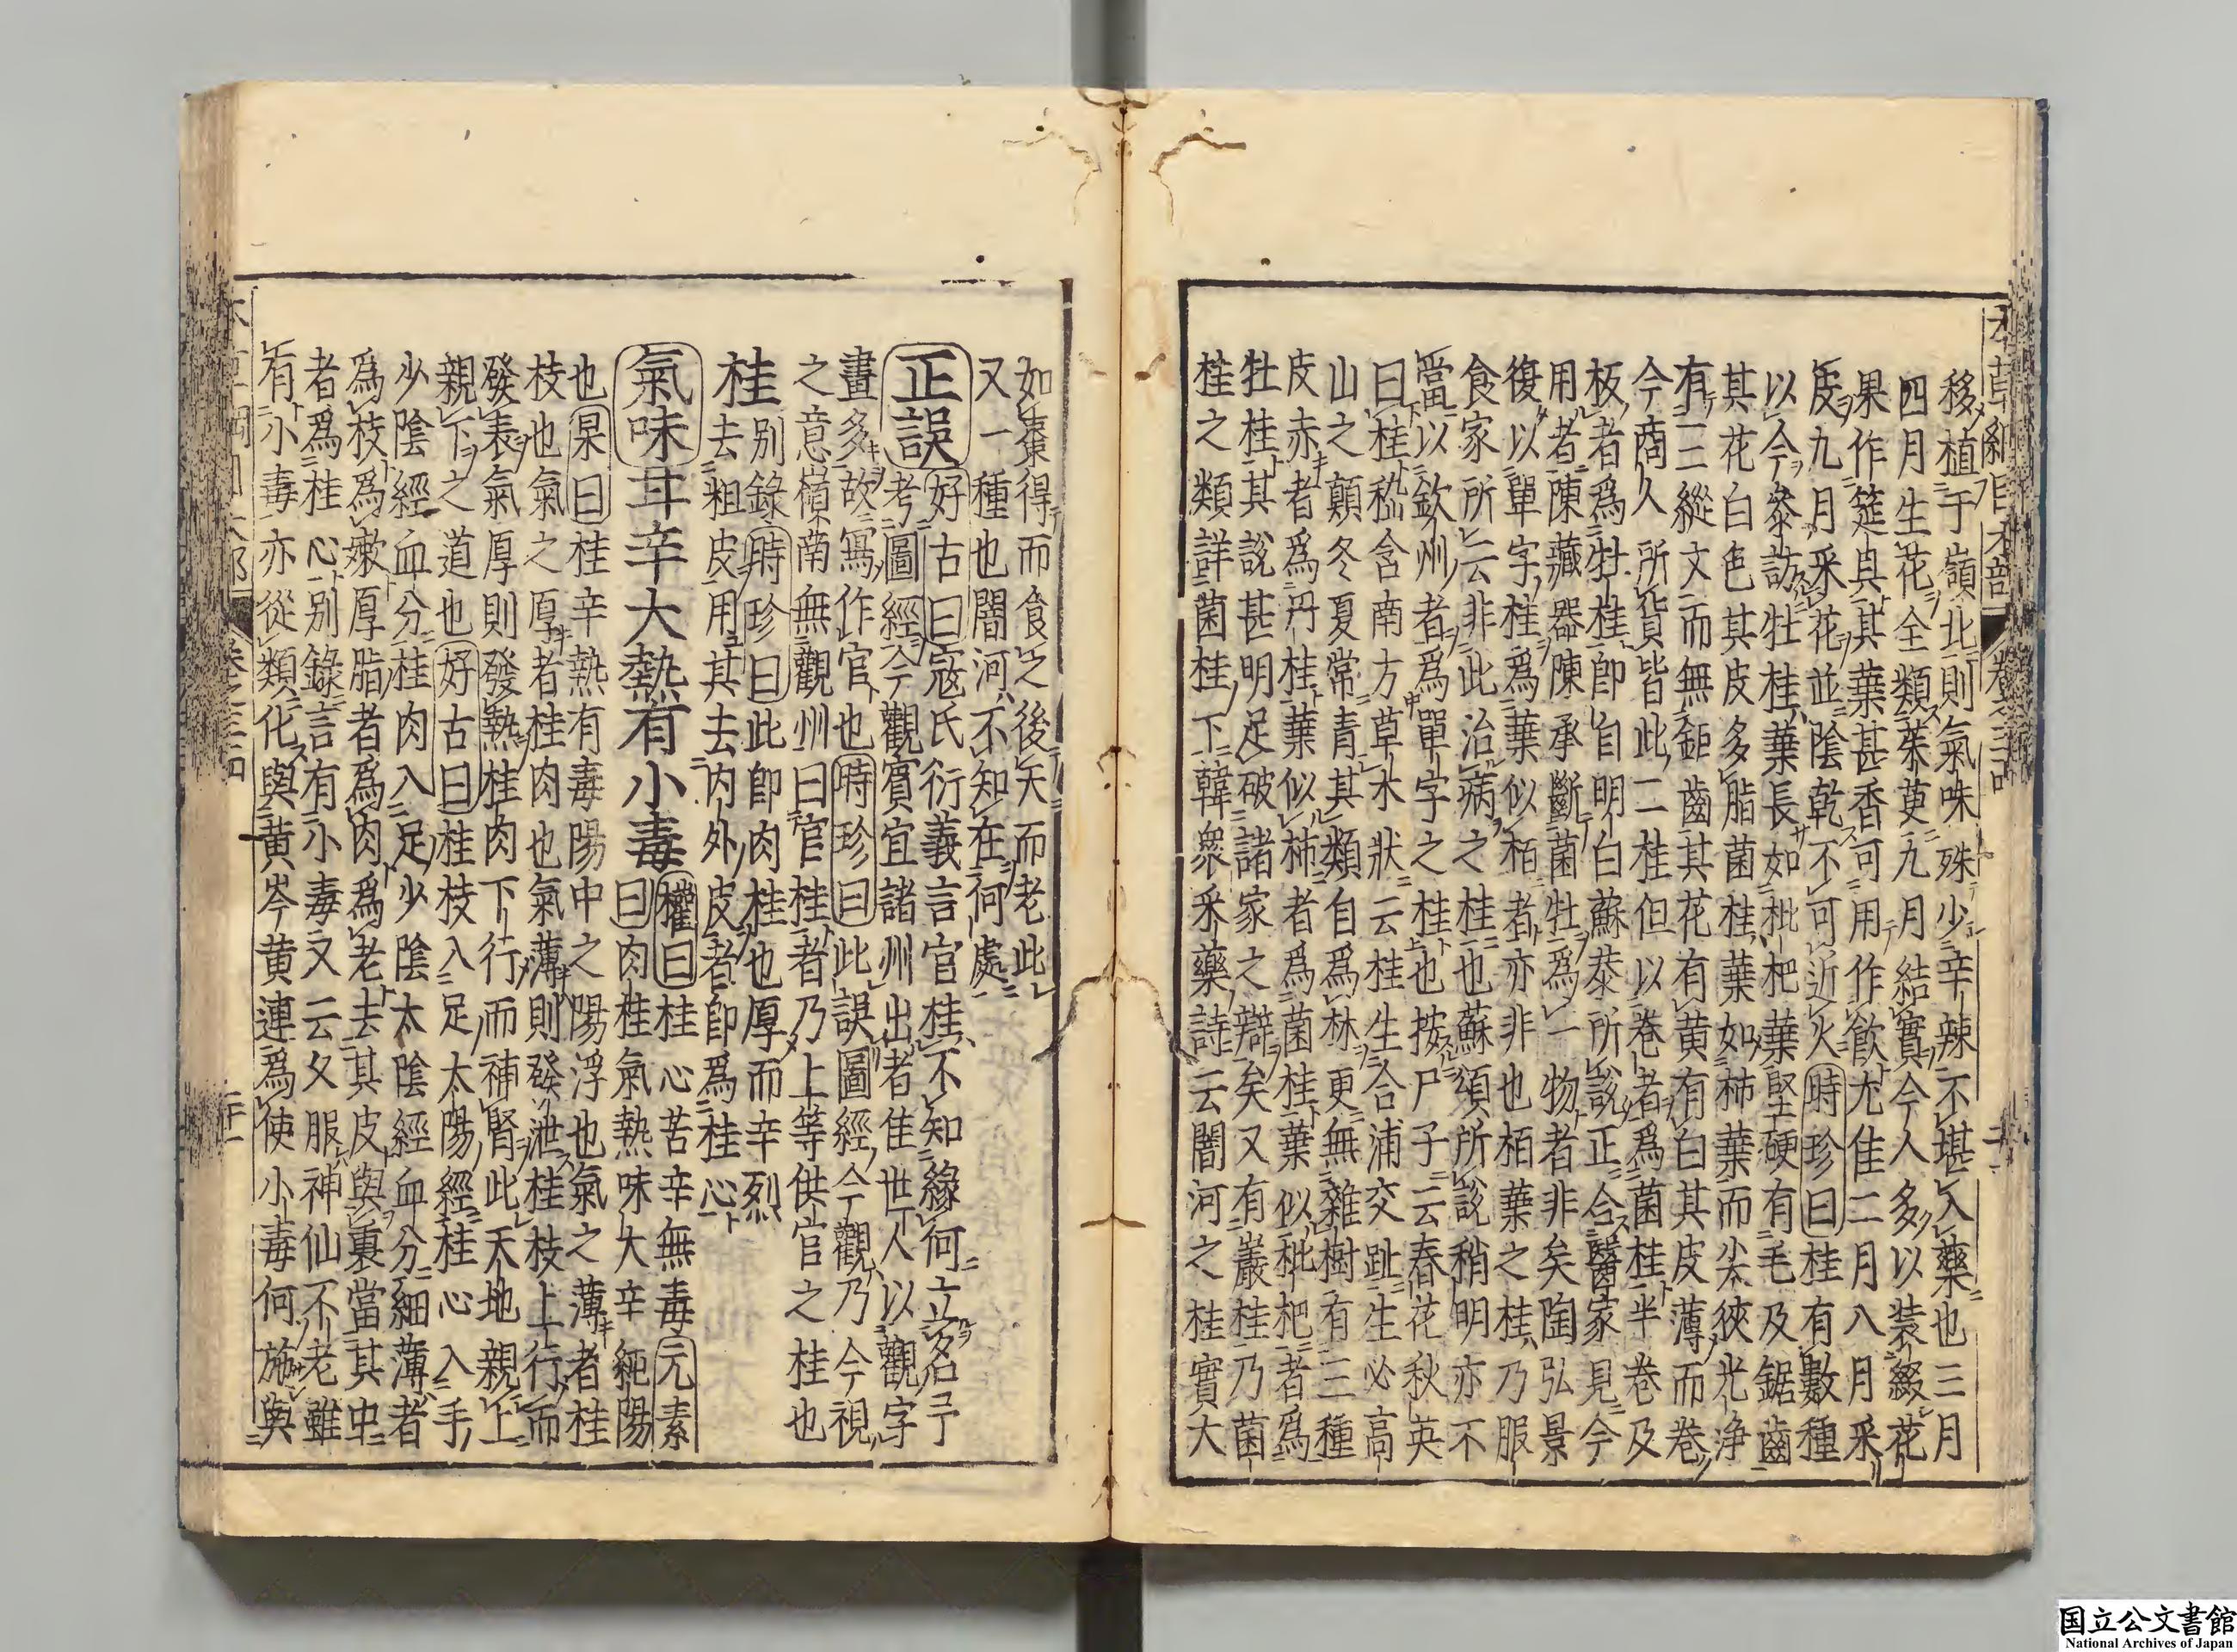 本草綱目木部 卷之三四
移植于嶺北則氣味殊少辛辣不堪入藥也三月
四月生花全類茱萸九月結實今人多以裝綴花
果作筵具其葉甚香可用作飲尤佳二月八月采
皮九月采花並陰乾不可近火時珍曰桂有數種
以今叅訪牡桂葉長如枇杷葉堅硬有毛及鋸齒
其花白色其皮多脂菌桂葉如柿葉而尖狹光淨
有三縱文而無鉅齒其花有黃有白其皮薄而卷
今商人所貨皆此二桂但以卷者爲菌桂半卷及
板者爲牡桂卽自明白蘇恭所說正合醫家見今
用者陳藏器陳承斷菌牡爲一物者非矣陶弘景
復以單字桂爲葉似栢者亦非也栢葉之桂乃服
食家所云非此治病之桂也蘇頌所說稍明亦不
當以欽州者爲單字之桂也按尸子云春花秋英
曰桂嵇含南方草木狀云桂生合浦交趾生必高
山之顚冬夏常青其類自爲林更無雜樹有三種
皮赤者爲丹桂葉似柿者爲菌桂葉似枇杷者爲
牡桂其說甚明足破諸家之辯矣又有巖桂乃菌
桂之類詳菌桂下韓衆采藥詩云闇河之桂實大
如棗得而食之後天而老此
又一種也闇河不知在何處
正誤 好古曰寇氏衍義言官桂不知緣何立名予
考圖經今觀賓宜諸州出者佳世人以觀字
畫多故寫作官也時珍曰此誤圖經今觀乃今視
之意嶺南無觀州曰官桂者乃上等供官之桂也
桂 別錄 時珍曰此卽肉桂也厚而辛烈
去粗皮用其去內外皮者卽爲桂心
氣味 甘辛大熱有小毒 權曰桂心苦辛無毒元素
曰肉桂氣熱味大辛純陽
也杲曰桂辛熱有毒陽中之陽浮也氣之薄者桂
枝也氣之厚者桂肉也氣薄則發泄桂枝上行而
發表氣厚則發熱桂肉下行而補腎此天地親上
親下之道也好古曰桂枝入足太陽經桂心入手
少陰經血分桂肉入足少陰太陰經血分細薄者
爲枝爲嫩厚脂者爲肉爲老去其皮與裏當其中
者爲桂心別錄言有小毒又云久服神仙不老雖
有小毒亦從類化與黃芩黃連爲使小毒何施與
国立公文書館
National Archives of Japan